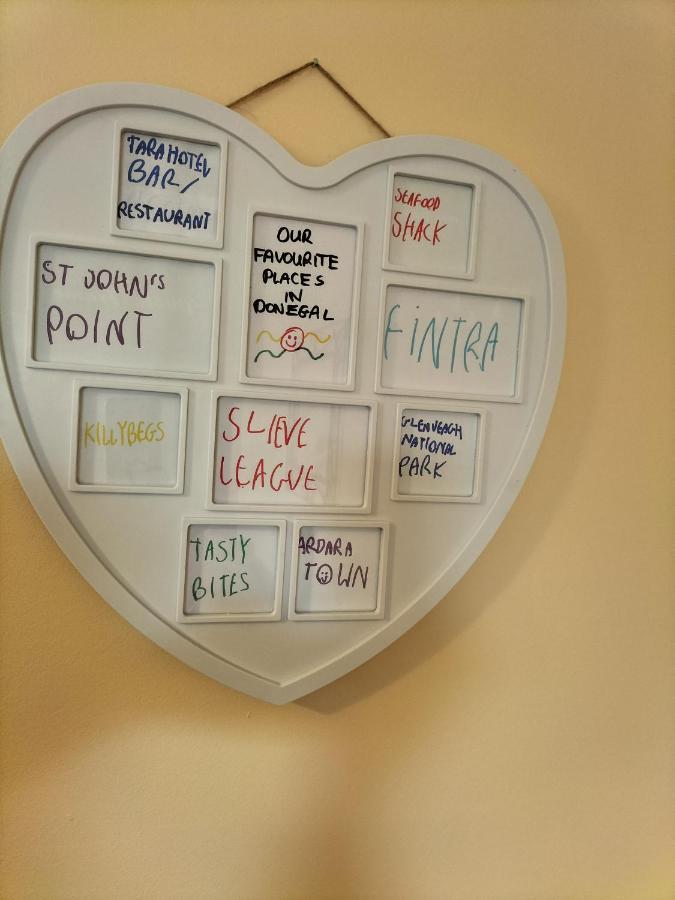 TARA HOTEL
BAR/
RESTAURANT
SEAFOOD
SHACK
OUR
FAVOURITE
PLACES
IN
DONEGAL
ST JOHN's
POINT
FINTRA
KILLYBEGS
SLIEVE
LEAGUE
GLENVEAGH
NATIONAL
PARK
TASTY
BITES
ARDARA
TOWN